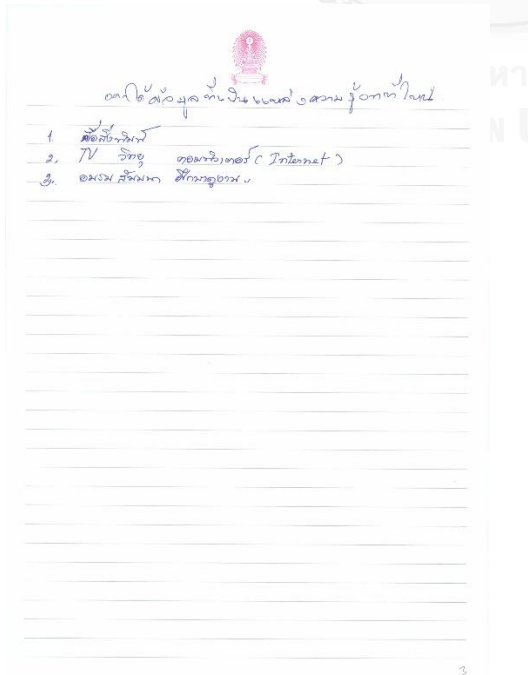 อยากได้ข้อมูลที่เป็นแหล่งความรู้จากที่ไหน
1. สื่อสิ่งพิมพ์
2. TV วิทยุ คอมพิวเตอร์ (Internet)
3. อบรม สัมมนา ศึกษาดูงาน
3